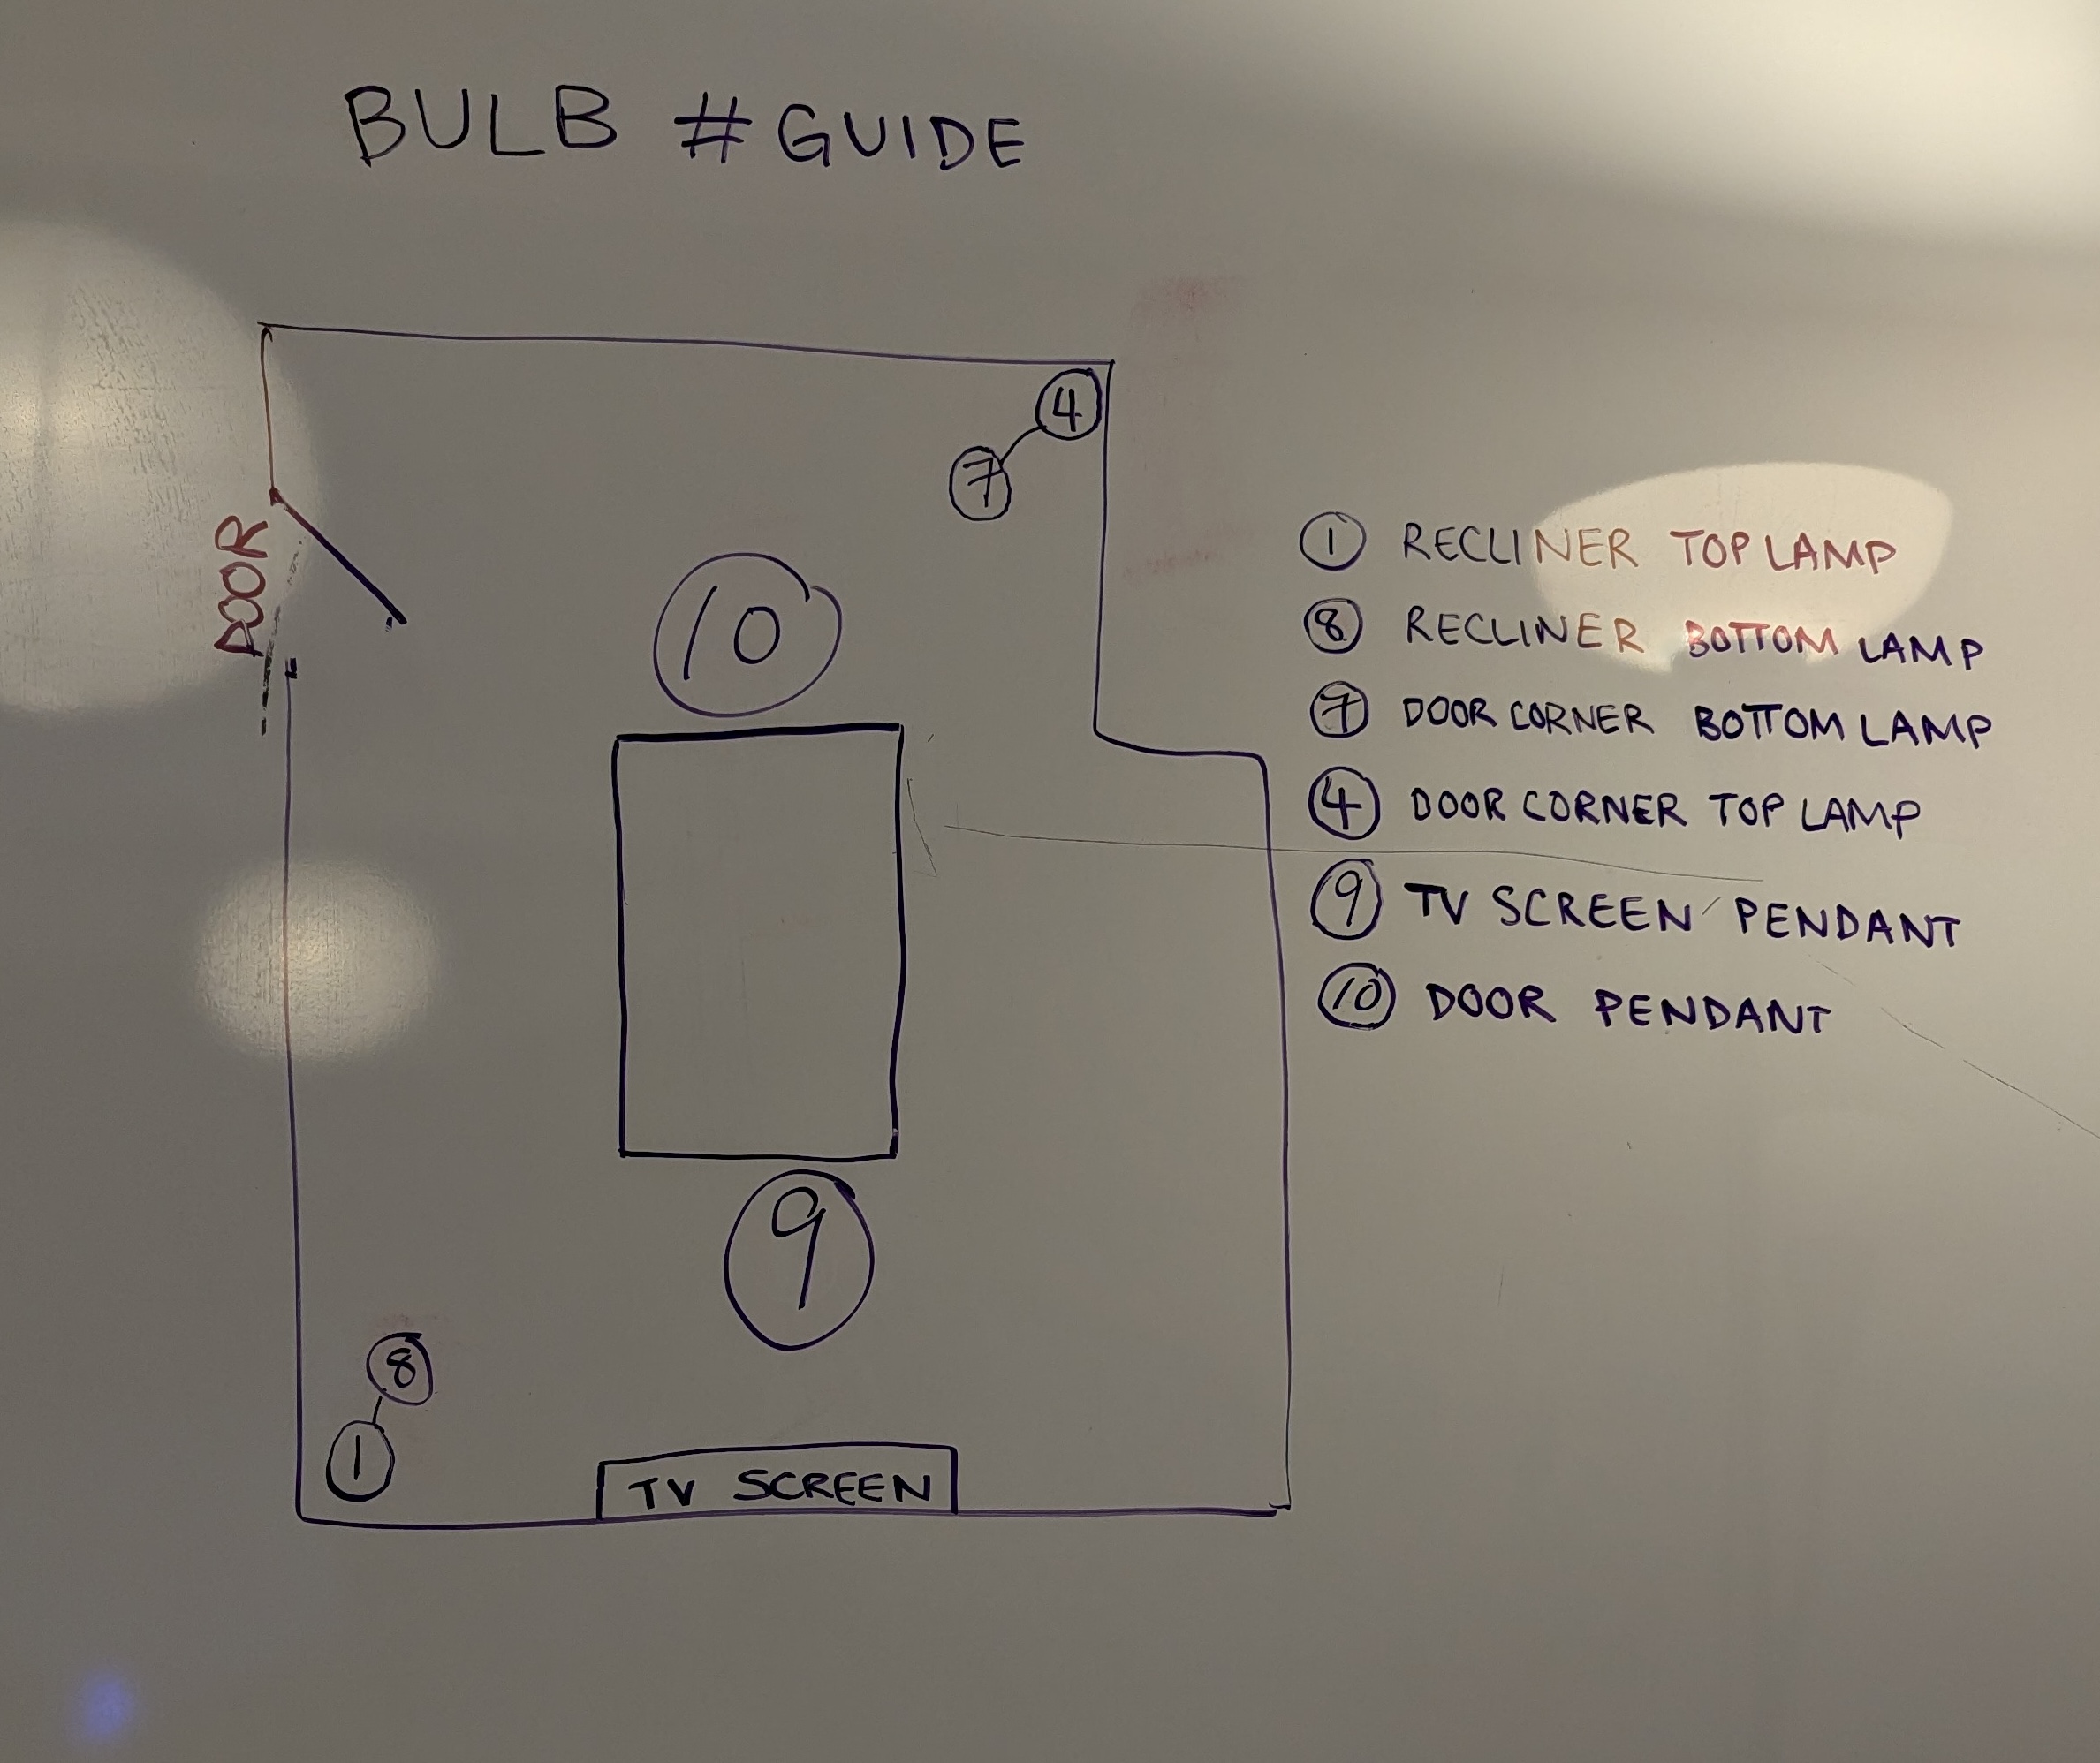 BULB #GUIDE
4
7
DOOR
10
① RECLINER TOP LAMP
⑧ RECLINER BOTTOM LAMP
⑦ DOOR CORNER BOTTOM LAMP
④ DOOR CORNER TOP LAMP
⑨ TV SCREEN PENDANT
⑩ DOOR PENDANT
9
8
1
TV SCREEN